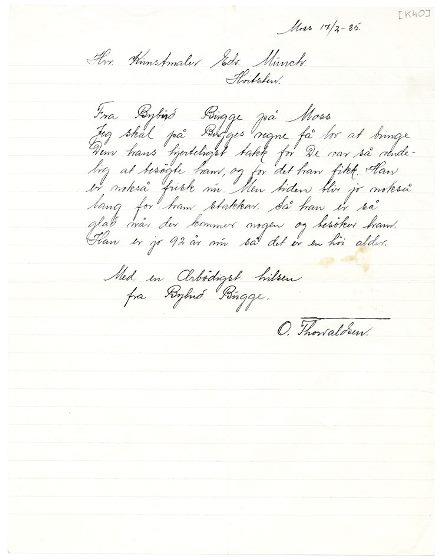 [K40]
Moss 17/2-35.
Hr. Kunstmaler Edv. Münch
Hvitsten.
Fra Bybud Bugge på Moss
Jeg skal på Bugges vegne få lov at bringe
Dem hans hjerteligst takk for De var så vende-
lig at besøgte ham, og for det han fikk. Han
er nokså frisk nu Men tiden blir jo nokså
lang for ham stakkar. Så han er så
glad når der kommer nogen og besøker ham.
Han er jo 92 år nu så det er en høi alder.
Med en Ærbødigst hilsen
fra Bybud Bugge.
O. Thorvaldsen.